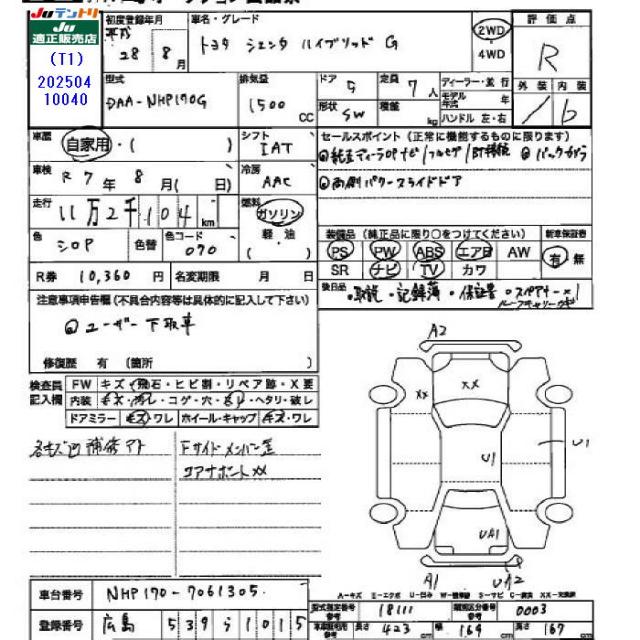 Ju テントリ
Ju
適正販売店
(T1)
202504
10040
初度登録年月 平成 28年 8月
車名・グレード トヨタ シエンタ ハイブリッド G
2WD
4WD
評価点
R
型式 DAA-NHP170G
排気量 1500 CC
ドア 5
定員 7人
形状 SW
積載 kg
ディーラー・並行
モデル年式 年
ハンドル 左・右
外装 内装
車歴 自家用・( )
シフト IAT
車検 R7年 8月(日)
冷房 AAC
走行 11万2千104km
燃料 ガソリン
軽・油
( )
色 シロP
色替
色コード 070
R券 10,360円
名変期限 月 日
セールスポイント(正常に機能するものに限ります)
◎純正ディーラOPナビ/フルセグ/BT接続 ◎バックカメラ
◎両側パワースライドドア
装備品(純正品に限り○をつけてください)
新車保証書
PS PW ABS エアB AW
SR ナビ TV カワ
有・無
後日品
・取説・記録簿・保証書・スペアキー×1
注意事項申告欄(不具合内容等は具体的に記入して下さい)
◎ユーザー下取車
修復歴 有(箇所 )
検査員記入欄
FW キズ・飛石・ヒビ割・リペア跡・X要
内装 キズ・汚レ・コゲ・穴・キレ・ヘタリ・破レ
ドアミラー キズ・ワレ ホイール・キャップ キズ・ワレ
各キズ凹 補修アト
Fサイドメンバー歪
コアサポートXX
A2
XX
XX
U1
U1
UA1
A1
UA2
車台番号 NHP170-7061305
登録番号 広島 539 ら 1015
型式指定番号 参考 18111
類別区分番号 参考 0003
長さ 423 cm 幅 169 cm 高さ 167 cm